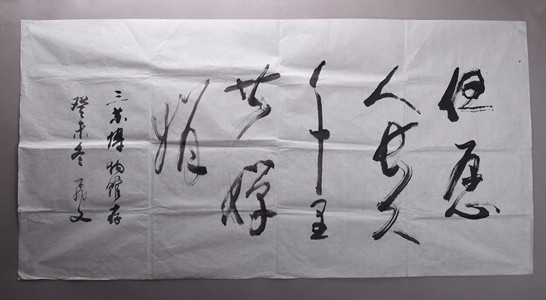 但愿
人长久
千里
共婵
娟
三苏博物馆存
癸未冬 义文